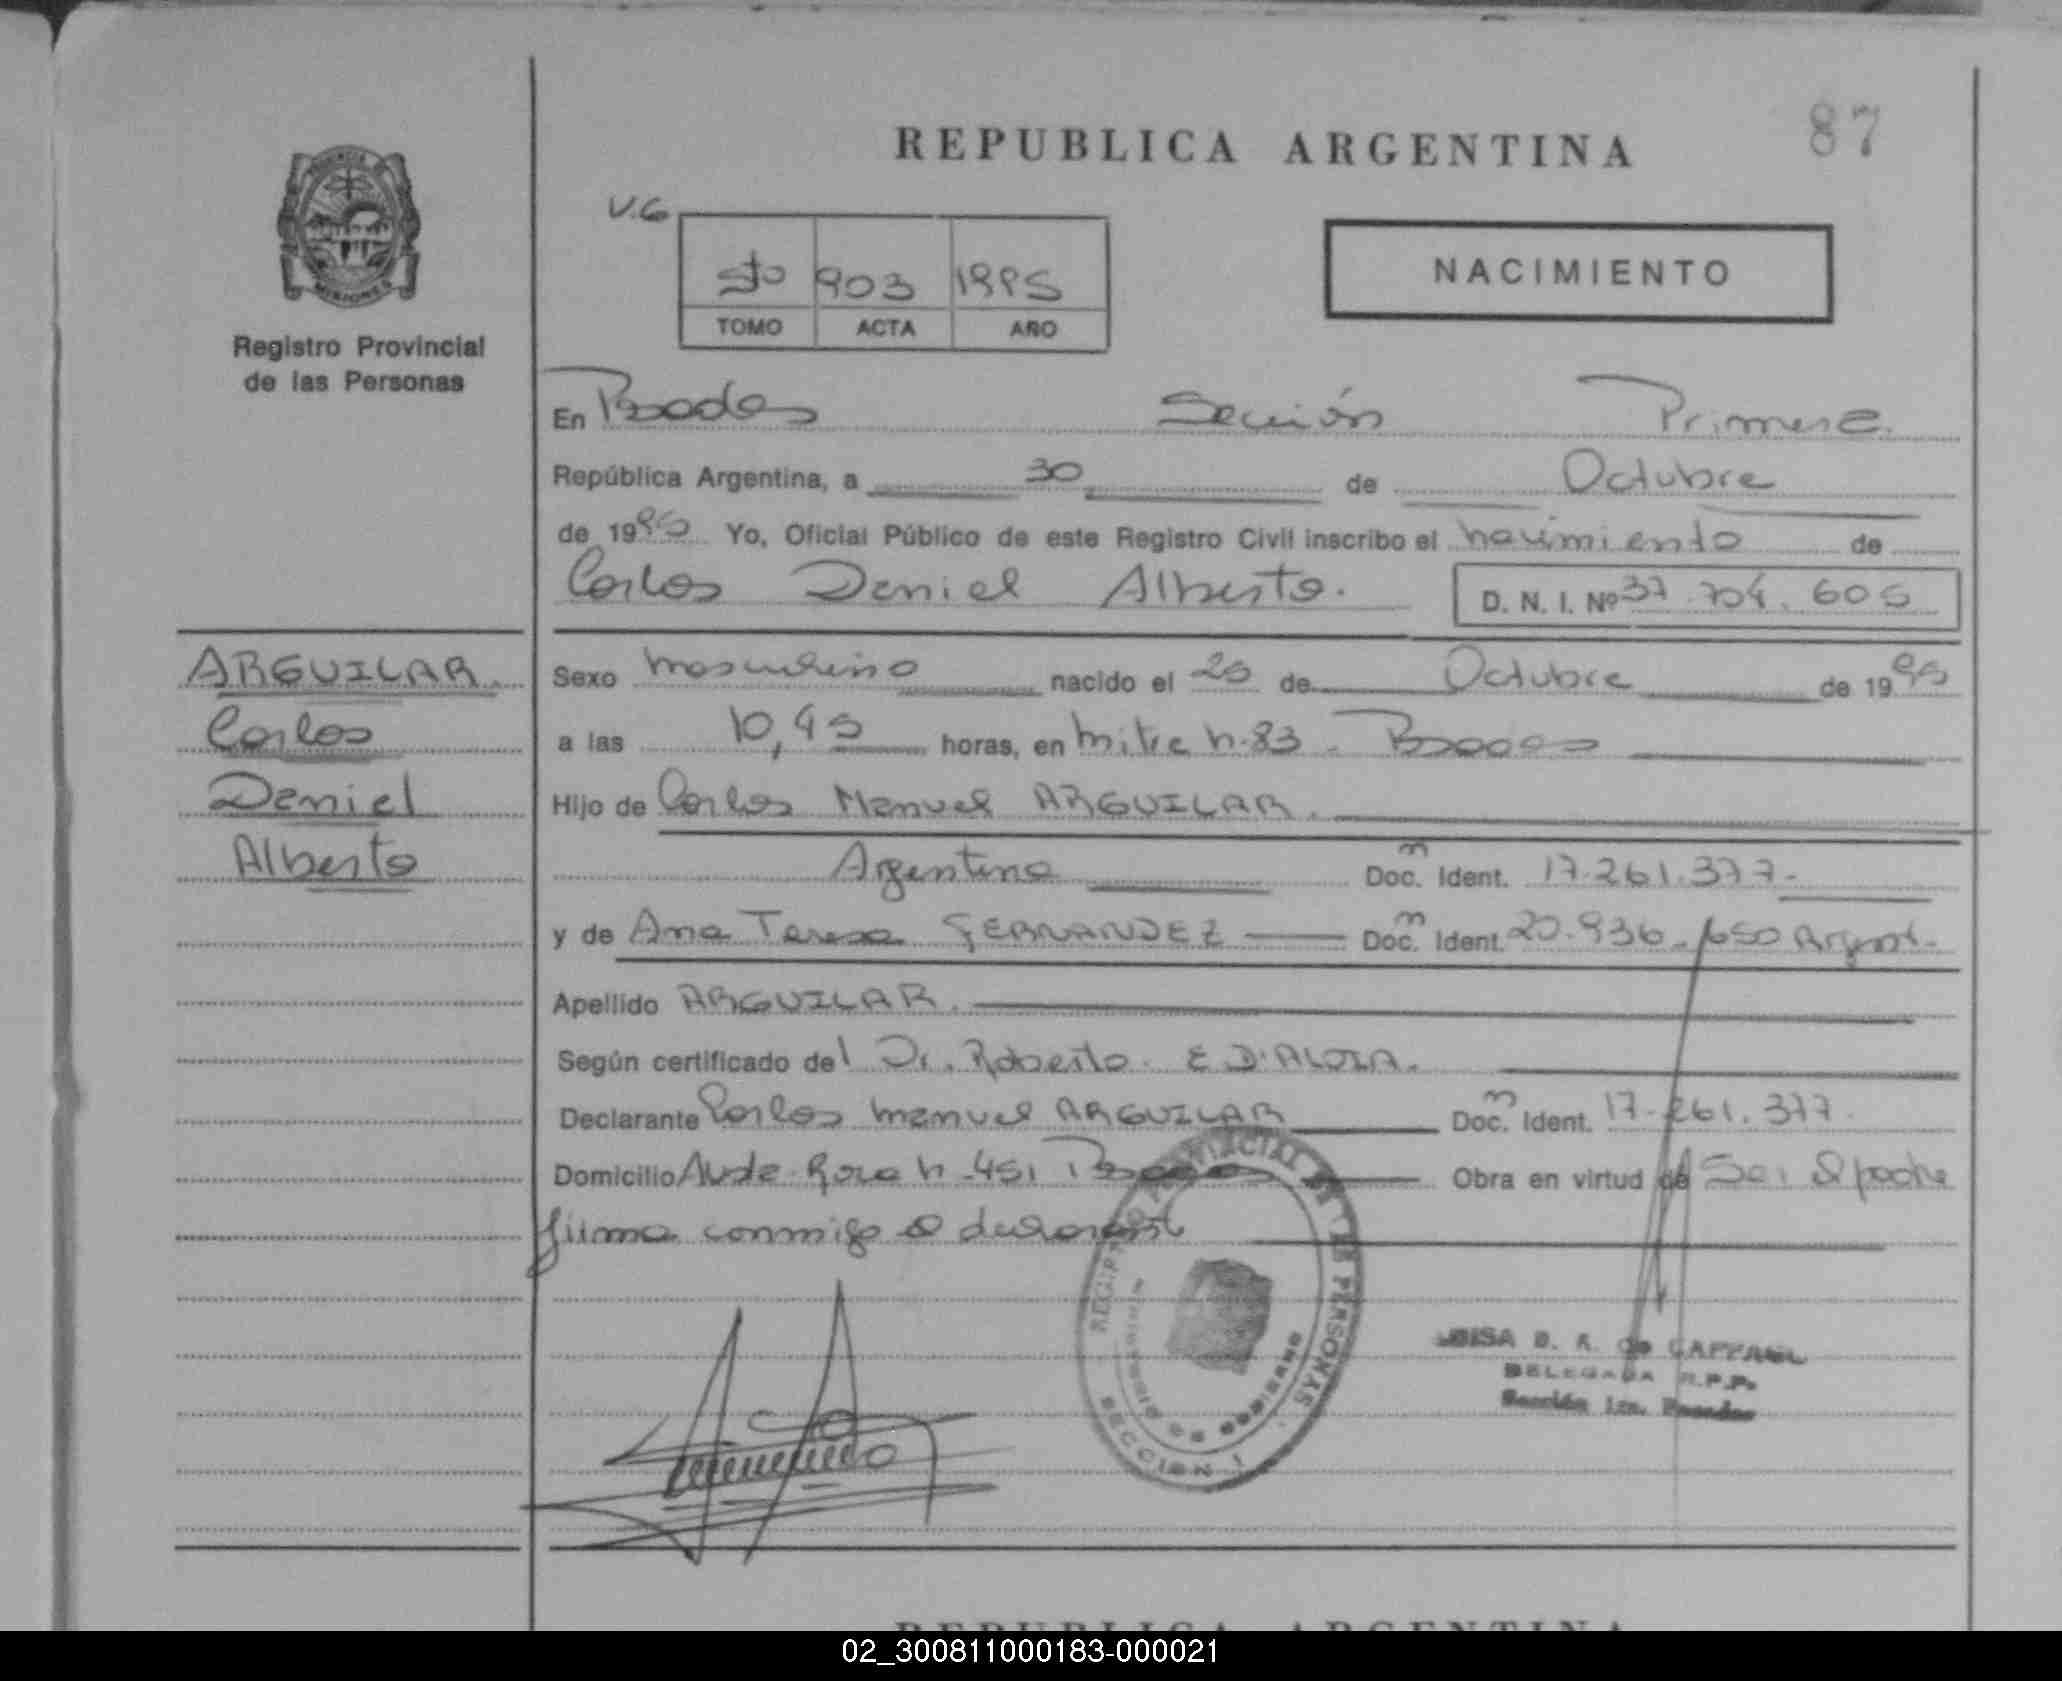 87
REPUBLICA ARGENTINA
PROVINCIA
MISIONES
Registro Provincial
de las Personas
V.G
5to 903 1995
TOMO ACTA AÑO
NACIMIENTO
En Posadas Sección Primera
República Argentina, a 30 de Octubre
de 1995 Yo, Oficial Público de este Registro Civil inscribo el nacimiento de
Carlos Daniel Alberto. D. N. I. Nº 37.704.605
ARGUILAR.
Carlos
Daniel
Alberto
Sexo masculino nacido el 25 de Octubre de 1995
a las 10,45 horas, en Mitre n-83 - Posadas
Hijo de Carlos Manuel ARGUILAR.
Argentino Doc. Ident. 17.261.377.-
y de Ana Teresa FERNANDEZ Doc. Ident. 20.936.650 Argent.
Apellido ARGUILAR.
Según certificado del Dr. Roberto E D'ALOIA.
Declarante Carlos Manuel ARGUILAR Doc. Ident. 17.261.377.
Domicilio Roca n-451 Posadas Obra en virtud de Ser el padre
firma conmigo el declarante
REG. PROVINCIAL DE LAS PERSONAS
MINISTERIO DE GOBIERNO
SECCION 1
DELEGADA R.P.P.
Sección 1ra. Posadas
REPUBLICA ARGENTINA
02_300811000183-000021